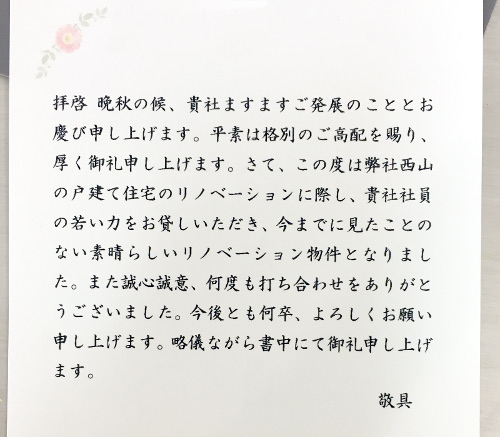 拝啓 晩秋の候、貴社ますますご発展のこととお
慶び申し上げます。平素は格別のご高配を賜り、
厚く御礼申し上げます。さて、この度は弊社西山
の戸建て住宅のリノベーションに際し、貴社社員
の若い力をお貸しいただき、今までに見たことの
ない素晴らしいリノベーション物件となりまし
た。また誠心誠意、何度も打ち合わせをありがと
うございました。今後とも何卒、よろしくお願い
申し上げます。略儀ながら書中にて御礼申し上げ
ます。
敬具